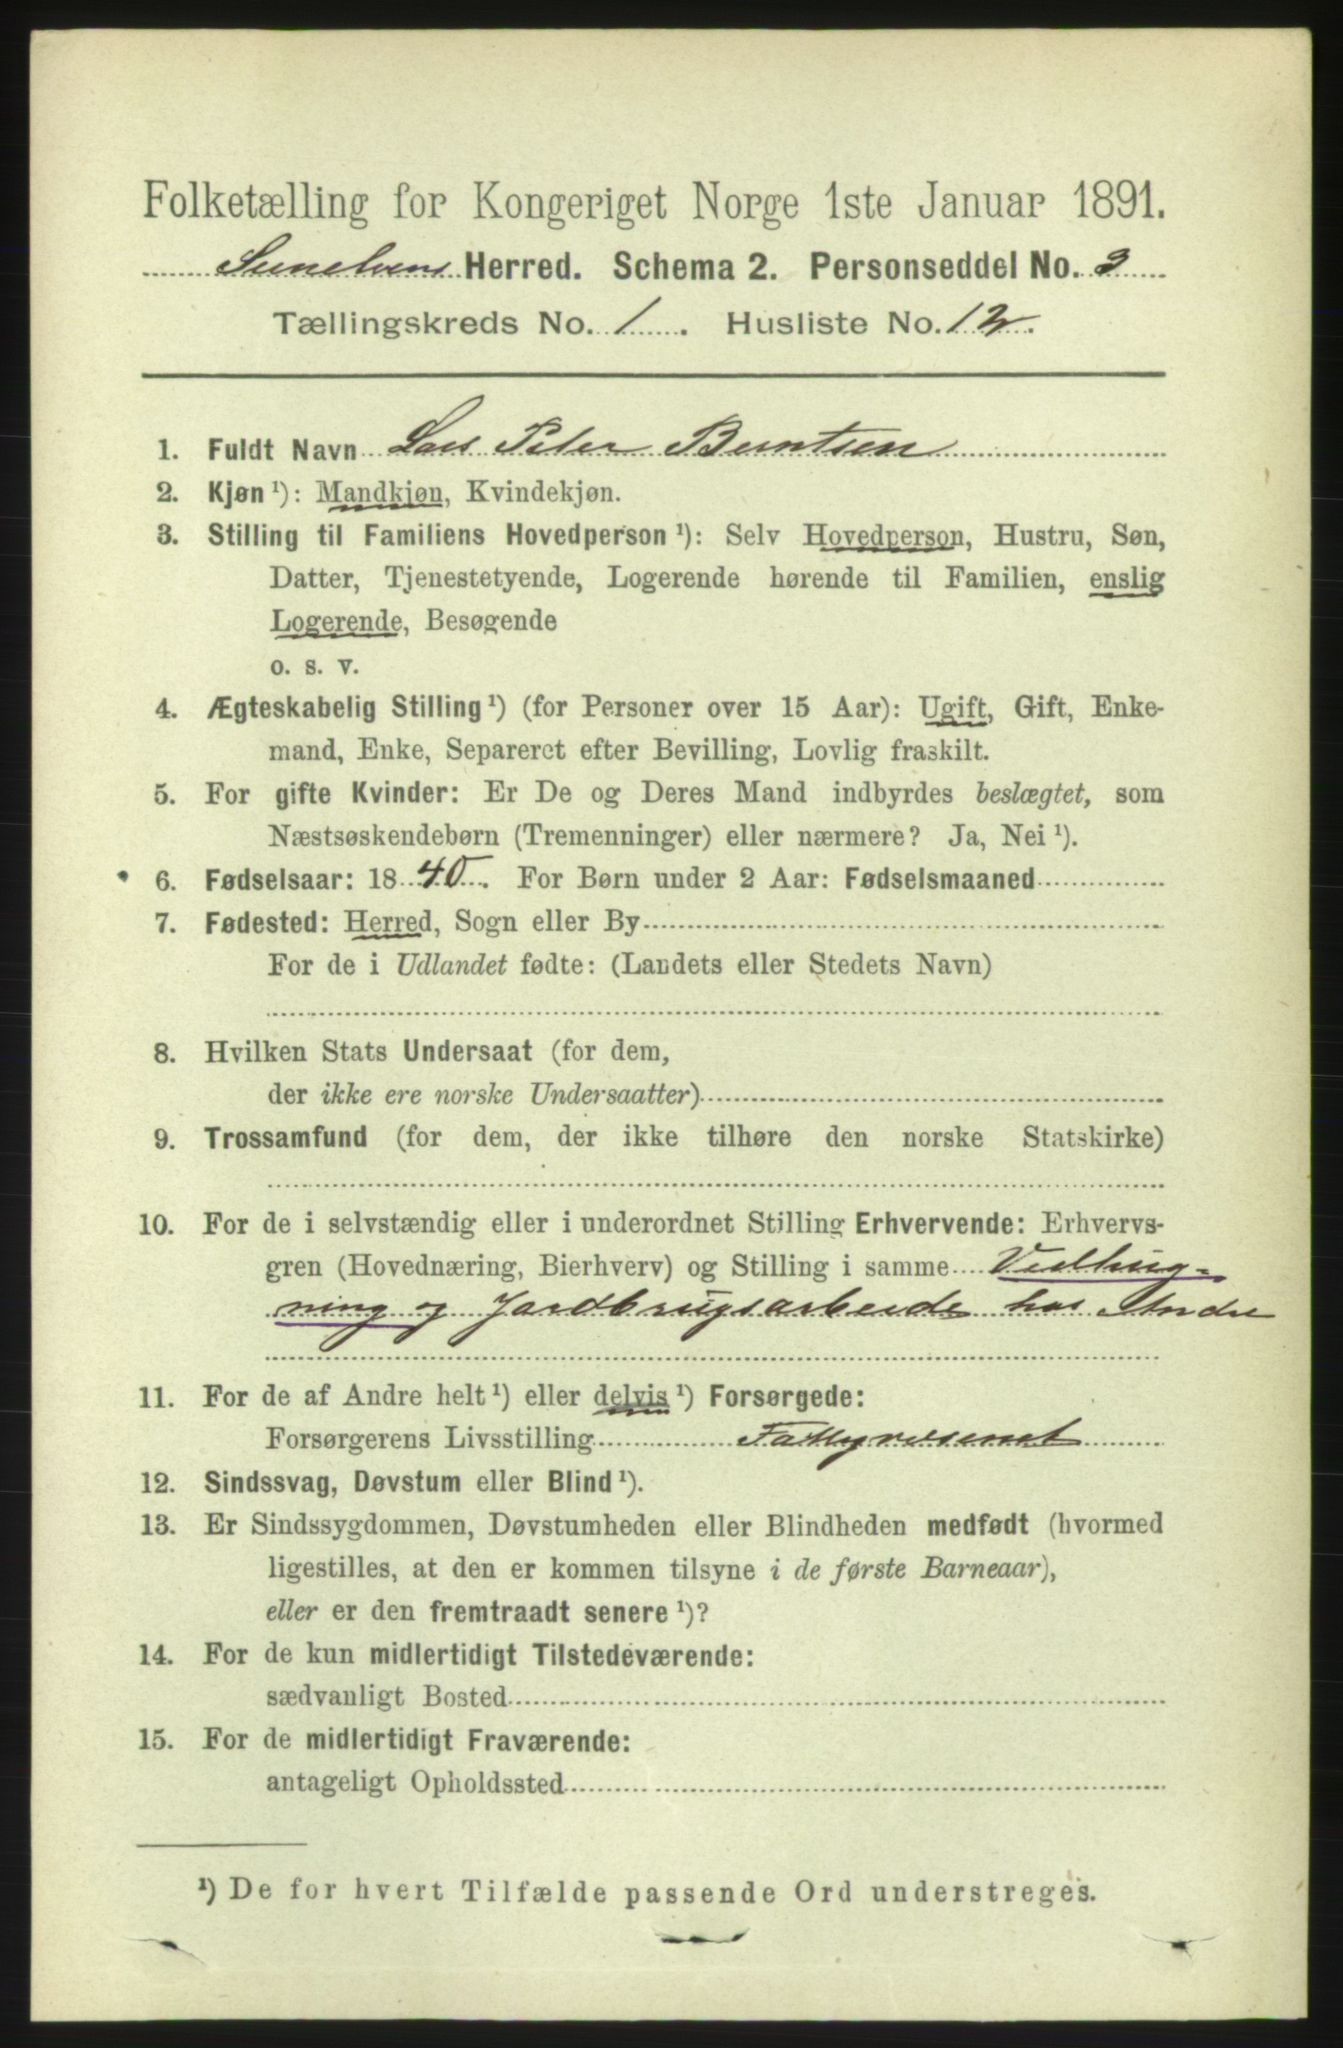 Folketælling for Kongeriget Norge 1ste Januar 1891.
Sunelvens Herred. Schema 2. Personseddel No. 3
Tællingskreds No. 1. Husliste No. 12.
1. Fuldt Navn Lars Peter Berntsen
2. Kjøn ¹): Mandkjøn, Kvindekjøn.
3. Stilling til Familiens Hovedperson ¹): Selv Hovedperson, Hustru, Søn,
Datter, Tjenestetyende, Logerende hørende til Familien, enslig
Logerende, Besøgende
o. s. v.
4. Ægteskabelig Stilling ¹) (for Personer over 15 Aar): Ugift, Gift, Enke-
mand, Enke, Separeret efter Bevilling, Lovlig fraskilt.
5. For gifte Kvinder: Er De og Deres Mand indbyrdes beslægtet, som
Næstsøskendebørn (Tremenninger) eller nærmere? Ja, Nei ¹).
6. Fødselsaar: 1840. For Børn under 2 Aar: Fødselsmaaned
7. Fødested: Herred, Sogn eller By
For de i Udlandet fødte: (Landets eller Stedets Navn)
8. Hvilken Stats Undersaat (for dem,
der ikke ere norske Undersaatter)
9. Trossamfund (for dem, der ikke tilhøre den norske Statskirke)
10. For de i selvstændig eller i underordnet Stilling Erhvervende: Erhvervs-
gren (Hovednæring, Bierhverv) og Stilling i samme Vedhug-
ning og Jordbrugsarbeide hos Andre
11. For de af Andre helt ¹) eller delvis ¹) Forsørgede:
Forsørgerens Livsstilling Fattigvæsenet
12. Sindssvag, Døvstum eller Blind ¹).
13. Er Sindssygdommen, Døvstumheden eller Blindheden medfødt (hvormed
ligestilles, at den er kommen tilsyne i de første Barneaar),
eller er den fremtraadt senere ¹)?
14. For de kun midlertidigt Tilstedeværende:
sædvanligt Bosted
15. For de midlertidigt Fraværende:
antageligt Opholdssted
¹) De for hvert Tilfælde passende Ord understreges.